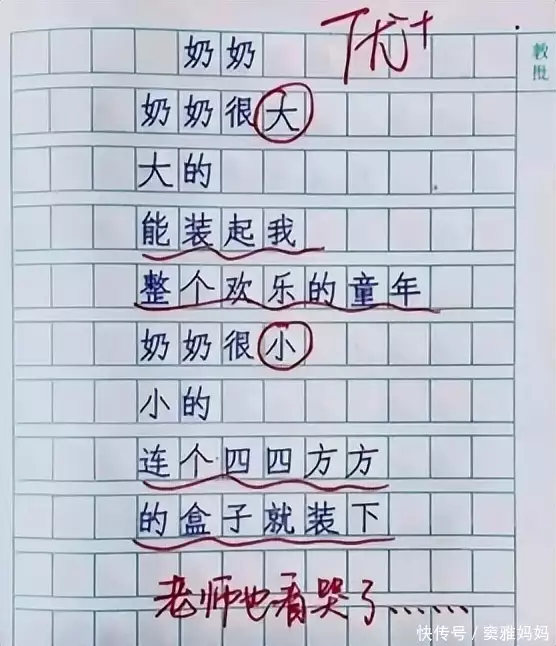 奶奶
优+
教批
奶奶很大
大的
能装起我
整个欢乐的童年
奶奶很小
小的
连个四四方方
的盒子就装下
老师也看哭了……
快传号/窦雅妈妈